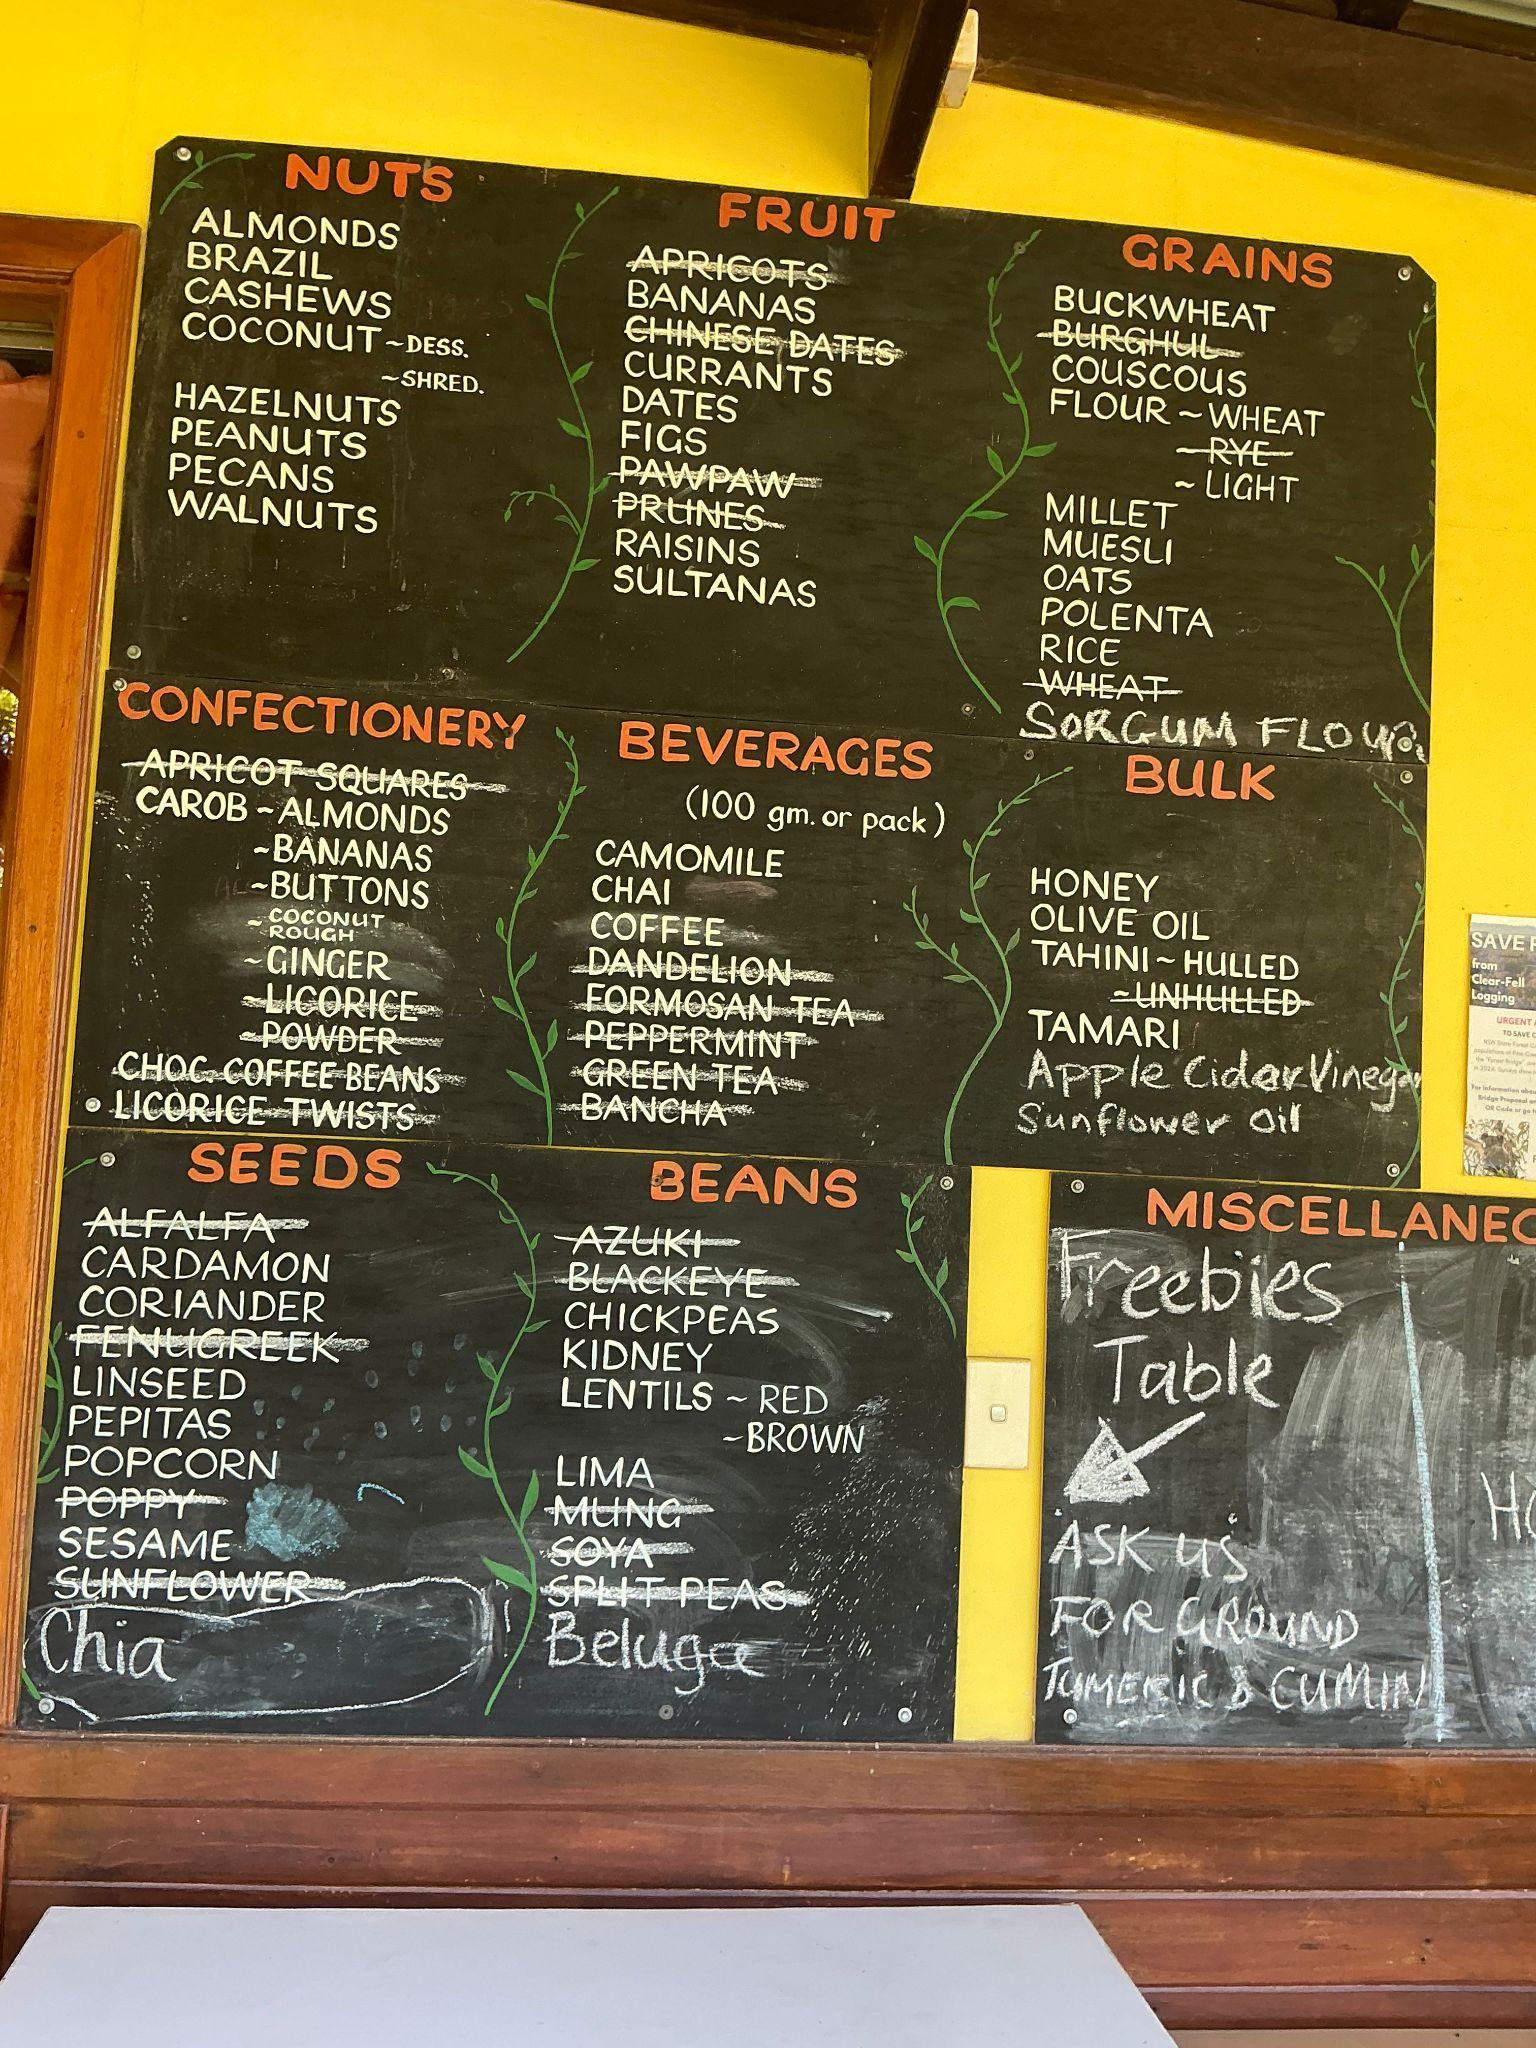 NUTS
ALMONDS
BRAZIL
CASHEWS
COCONUT ~DESS.
~SHRED.
HAZELNUTS
PEANUTS
PECANS
WALNUTS
FRUIT
APRICOTS
BANANAS
CHINESE DATES
CURRANTS
DATES
FIGS
PAWPAW
PRUNES
RAISINS
SULTANAS
GRAINS
BUCKWHEAT
BURGHUL
COUSCOUS
FLOUR ~ WHEAT
~ RYE
~ LIGHT
MILLET
MUESLI
OATS
POLENTA
RICE
WHEAT
SORGUM FLOUR
CONFECTIONERY
APRICOT SQUARES
CAROB ~ ALMONDS
~BANANAS
~BUTTONS
~COCONUT
ROUGH
~GINGER
~LICORICE
~POWDER
CHOC-COFFEE BEANS
LICORICE TWISTS
BEVERAGES
(100 gm. or pack)
CAMOMILE
CHAI
COFFEE
DANDELION
FORMOSAN TEA
PEPPERMINT
GREEN TEA
BANCHA
BULK
HONEY
OLIVE OIL
TAHINI ~ HULLED
~UNHULLED
TAMARI
Apple Cider Vinegar
Sunflower Oil
SEEDS
ALFALFA
CARDAMON
CORIANDER
FENUGREEK
LINSEED
PEPITAS
POPCORN
POPPY
SESAME
SUNFLOWER
Chia
BEANS
AZUKI
BLACKEYE
CHICKPEAS
KIDNEY
LENTILS ~ RED
~BROWN
LIMA
MUNG
SOYA
SPLIT PEAS
Beluga
MISCELLANEO
Freebies
Table
ASK US
FOR GROUND
TUMERIC & CUMIN
SAVE
from
Clear-Fell
Logging
URGENT